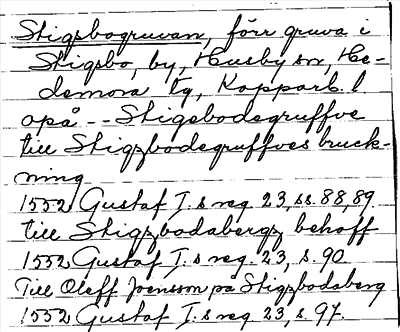 Stigsbogruvan, förr gruva i
Stigsbo, by, Husby sn, He-
demora tg, Kopparb. l.
opå -- Stigsbodegruffve
till Stigzbodegruffves bruck-
ning
1552 Gustaf I.s reg. 23, ss. 88, 89.
till Stigzbodabergz behoff
1552 Gustaf I.s reg. 23, s. 90
Till Oleff Joensson på Stigzbodaberg
1552 Gustaf I.s reg. 23, s. 97.